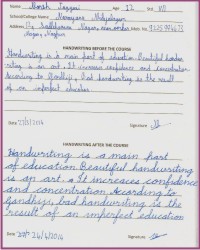 Name:
Age 12 Std. VII
School/College Name: Narayana Vidyalayam
Address
Nagar, Nagpur
HANDWRITING BEFORE THE COURSE
Handwriting is a main part of education. Beautiful handw-
riting is an art. It increases confidence and concentration.
According to Gandhiji, Bad handwriting is the result
of an imperfect education.
Signature
HANDWRITING AFTER THE COURSE
Handwriting is a main part
of education. Beautiful handwriting
is an art. It increases confidence
and concentration. According to
Gandhiji, bad handwriting is the
result of an imperfect education
Signature